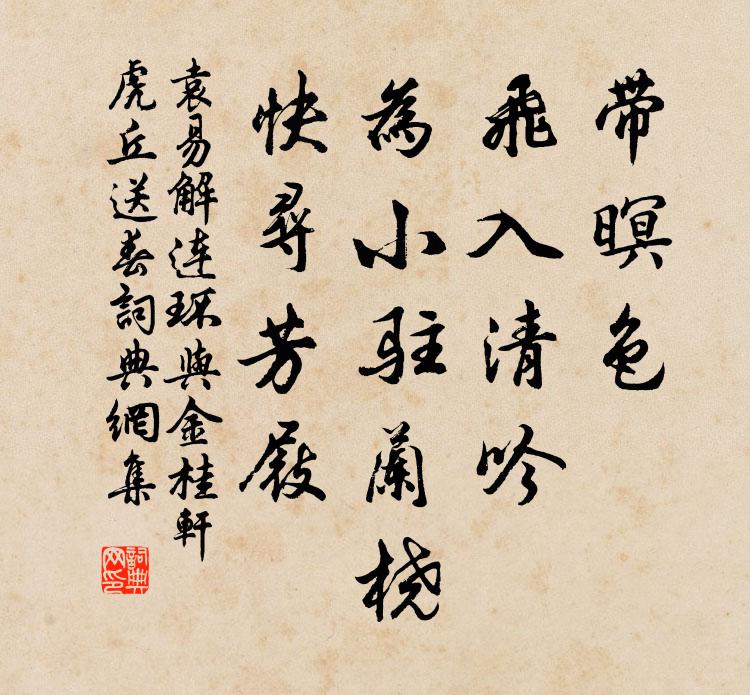 帶暝色
飛入清吟
為小駐蘭橈
快尋芳屐
袁易解連環與金桂軒
虎丘送春詞典網集
詞典网印